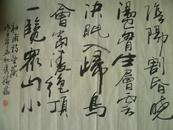 陰陽割昏曉
盪胸生層雲
決眦入歸鳥
會當凌絕頂
一覽衆山小